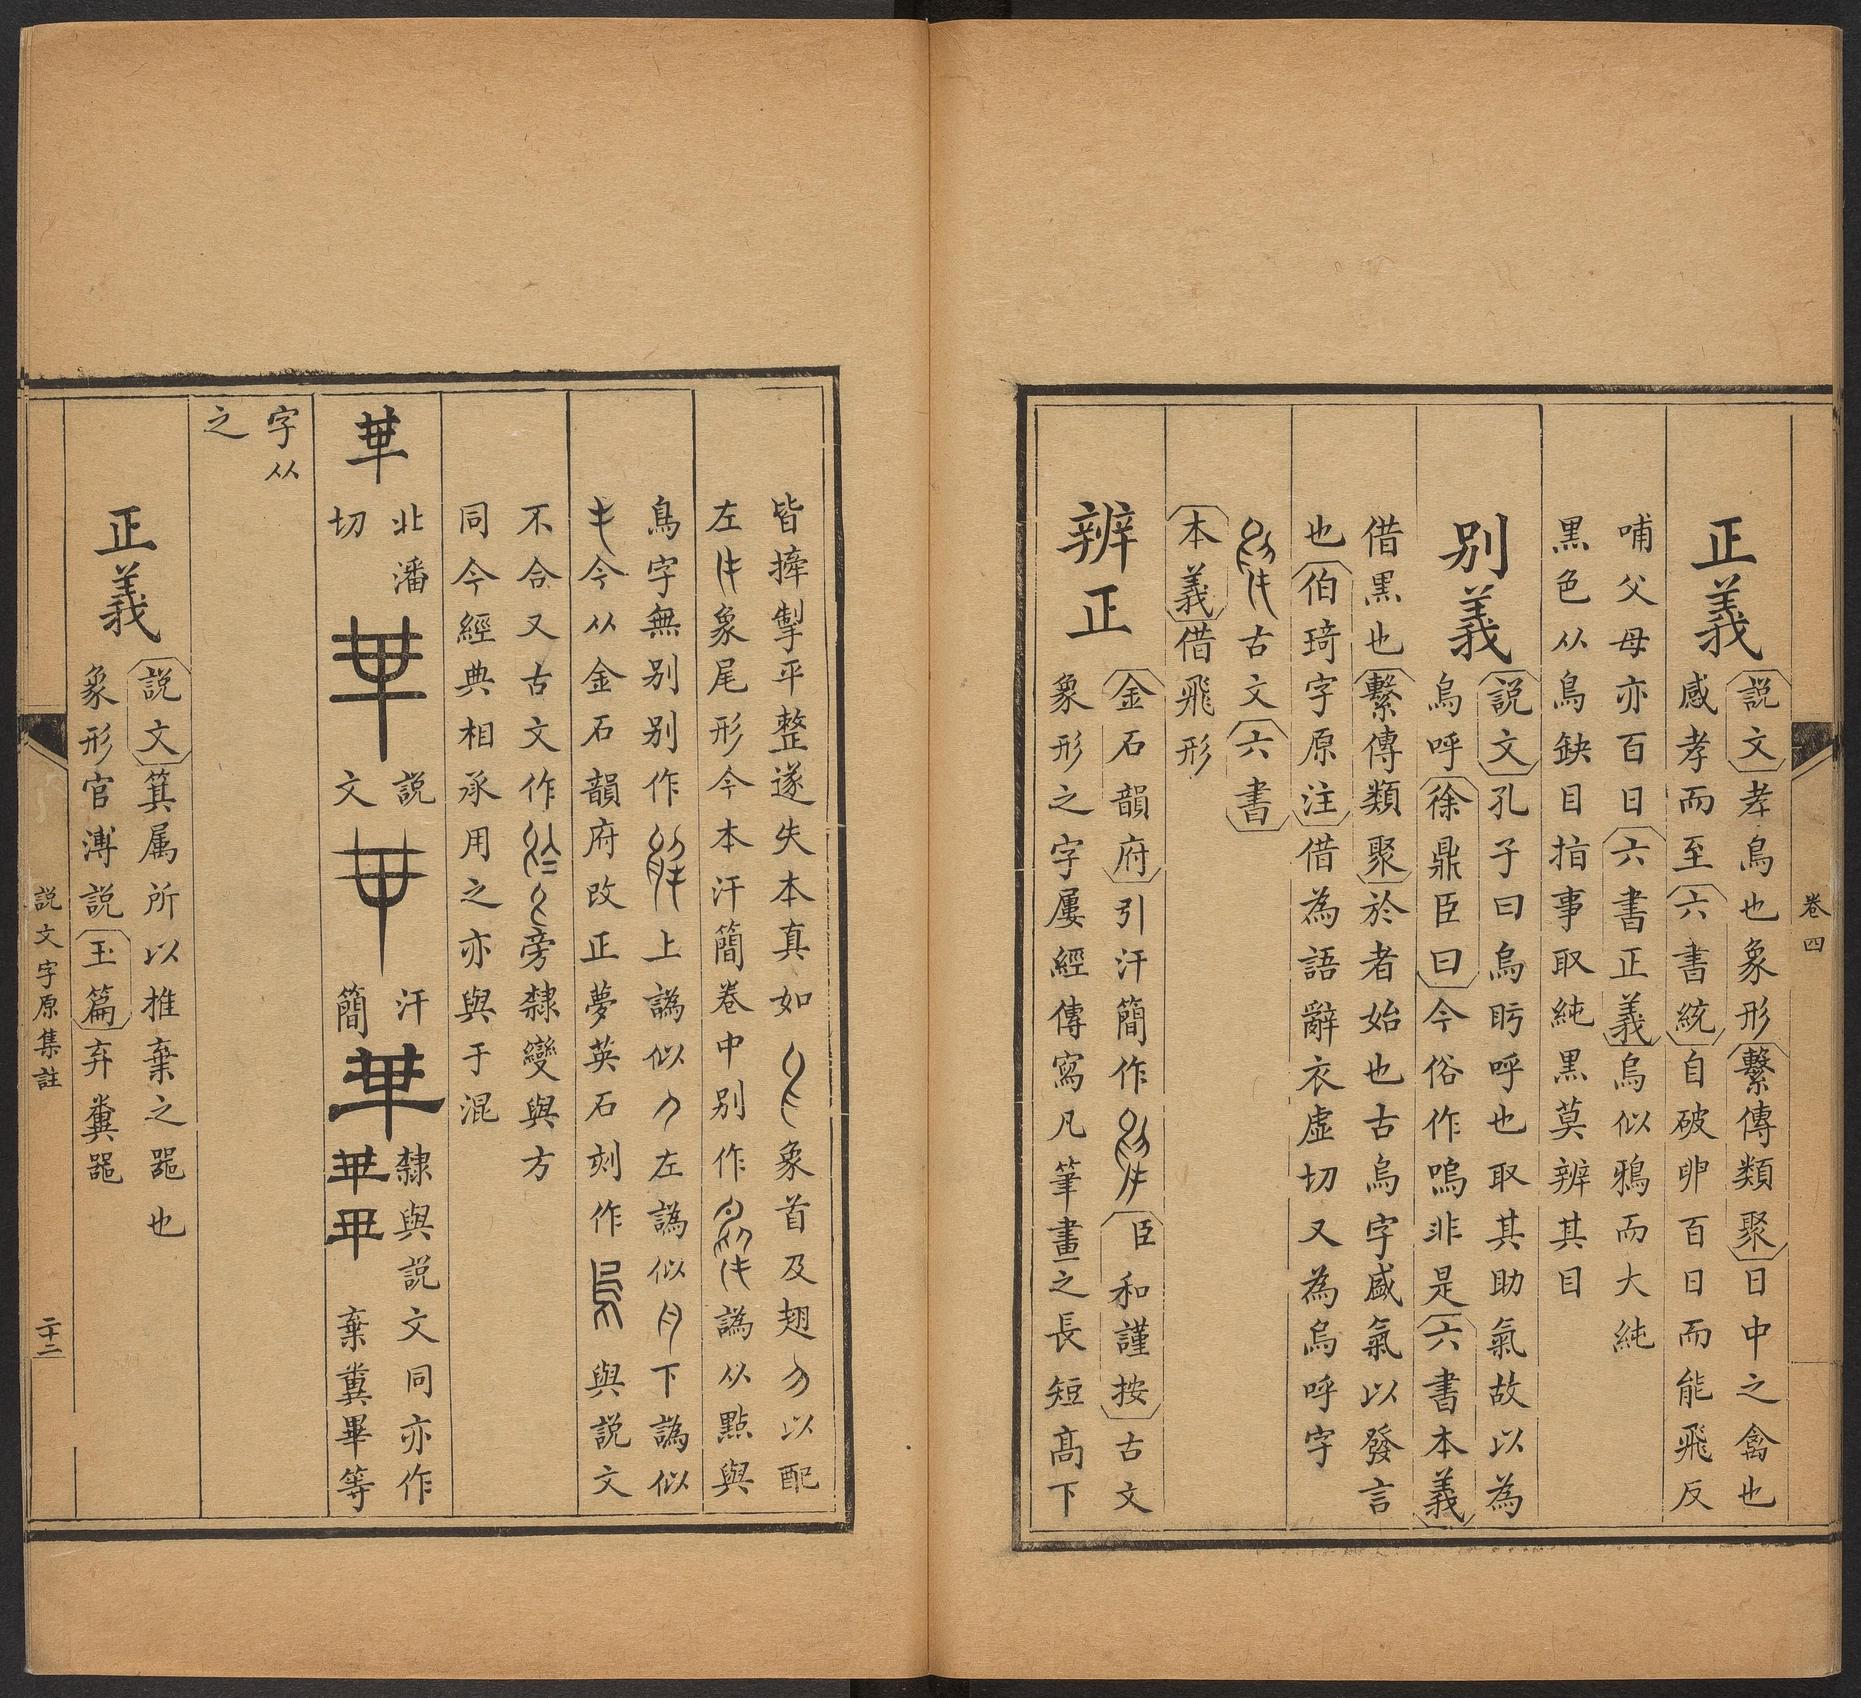 卷四
正義
說文孝鳥也象形繫傳類聚日中之禽也
感孝而至六書統自破卵百日而能飛反
哺父母亦百日六書正義烏似鴉而大純
黑色从鳥缺目指事取純黑莫辨其目
別義
說文孔子曰烏盱呼也取其助氣故以為
烏呼徐鼎臣曰今俗作嗚非是六書本義
借黑也繫傳類聚於者始也古烏字感氣以發言
也伯琦字原注借為語辭衣虛切又為烏呼字
古文六書
本義借飛形
辨正
金石韻府引汗簡作臣和謹按古文
象形之字屢經傳寫凡筆畫之長短高下
皆擡掣平整遂失本真如象首及翅以配
左象尾形今本汗簡卷中別作譌从點與
鳥字無別別作上譌似左譌似下譌似
今从金石韻府改正夢英石刻作與說文
不合又古文作旁隸變與方
同今經典相承用之亦與于混
華
北潘
切
說
文
汗
簡
隸與說文同亦作
棄糞畢等
字从
之
正義
說文箕屬所以推棄之器也
象形官溥說玉篇弃糞器
說文字原集註
二十二